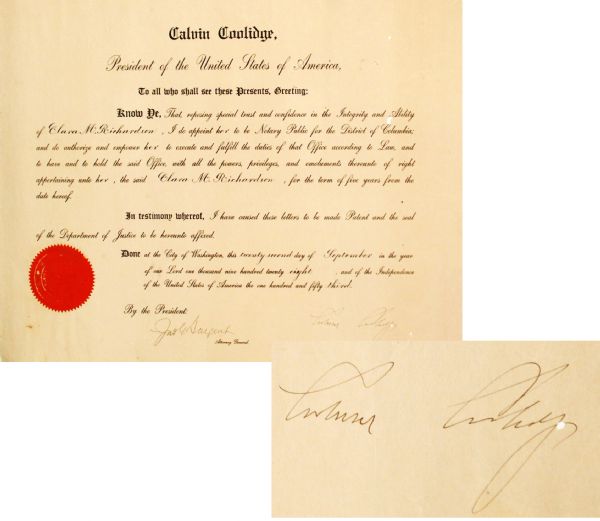 Calvin Coolidge,
President of the United States of America,
To all who shall see these Presents, Greeting:
Know Ye, That, reposing special trust and confidence in the Integrity and Ability
of Clara M. Richardson, I do appoint her to be Notary Public for the District of Columbia;
and do authorize and empower her to execute and fulfill the duties of that Office according to Law, and
to have and to hold the said Office, with all the powers, privileges, and emoluments thereunto of right
appertaining unto her, the said Clara M. Richardson, for the term of five years from the
date hereof.
In testimony whereof, I have caused these letters to be made Patent and the seal
of the Department of Justice to be hereunto affixed.
Done at the City of Washington, this twenty second day of September in the year
of our Lord one thousand nine hundred twenty eight, and of the Independence
of the United States of America the one hundred and fifty third.
By the President:
Jno G Sargent
Calvin Coolidge
Attorney General
Calvin Coolidge